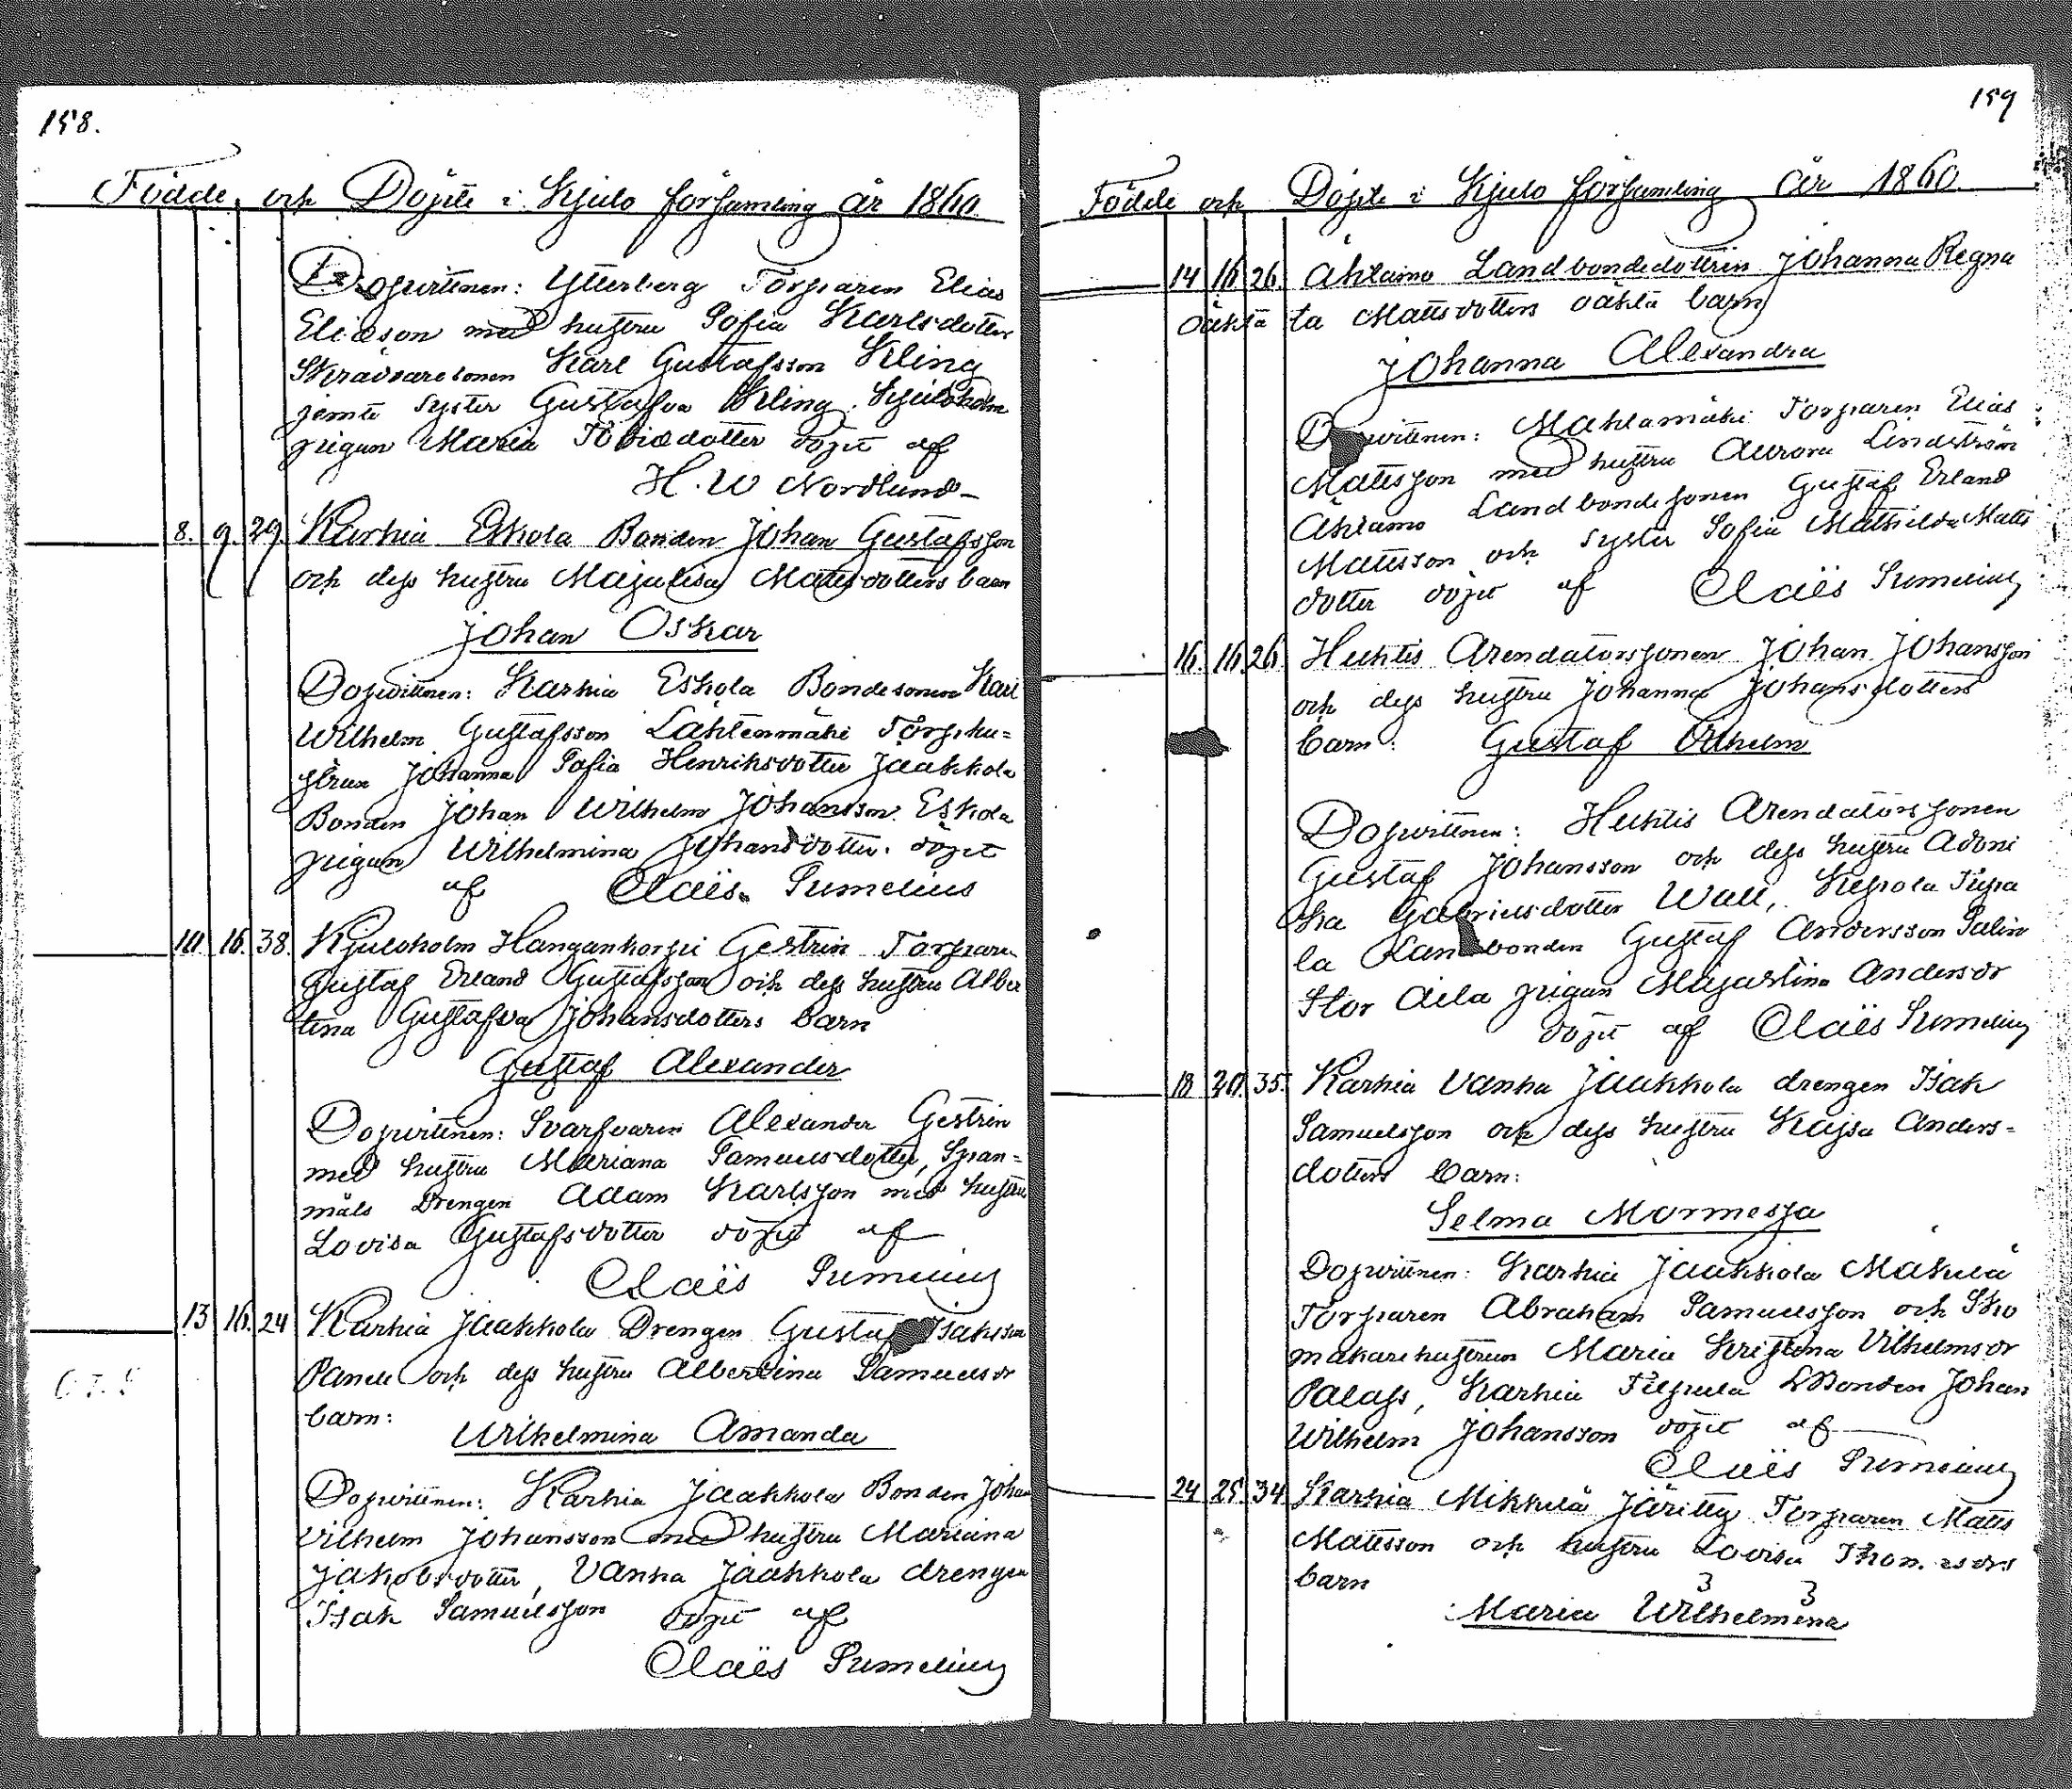 158.
Födde och Döpte i Kjulo församling år 1860.
Dopvittnen: Ytterberg Torparen Elias
Eliæson med hustru Sofia Karlsdotter
Skräddaresonen Karl Gustafsson Kling
jemte syster Gustafva Kling. Kjuloholm
pigan Maria Tobiædotter döpt af
H. W Nordlund
8. 9. 29. Karhia Eskola Bonden Johan Gustafsson
och dess hustru Majalisa Mattsdotters barn
Johan Oskar
Dopvittnen: Karhia Eskola Bondesonen Karl
Wilhelm Gustafsson Lahtenmäki Torphu=
strun Johanna Sofia Henriksdotter Jaakkola
Bonden Johan Wilhelm Johansson. Eskola
pigan Wilhelmina Johansdotter. döpt
af Claës Sumelius
10. 16. 38. Kjuloholm Hangankorpi Gestrin Torparn
Gustaf Erland Gustafsson och dess hustru Alber
tina Gustafva Johansdotters barn
Gustaf Alexander
Dopvittnen: Svarfvaren Alexander Gestrin
med hustru Mariana Samuelsdotter, Span=
mäls Drengen Adam Karlsson med hustru
Lovisa Gustafsdotter döpt af
Claës Sumelius
13 16. 24 Karhia Jaakkola Drengen Gustaf Isaksson
Panele och dess hustru Albertina Samuelsdr
barn:
Wilhelmina Amanda
Dopvittnen: Karhia Jaakkola Bonden Johan
Vilhelm Johansson med hustru Mariana
Jakobsdotter, Vanha Jaakkola drengen
Isak Samuelsson döpt af
Claës Sumelius
159
Födde och Döpte i Kjulo församling år 1860
14 16 26. Ahlaimo Landbondedottren Johanna Regna
oäkta ta Mattsdotters oäkta barn
Johanna Alexandra
Dopvittnen: Mahlamäki Torparen Elias
Mattsson med hustru Aurora Lindström
Ahlaimo Landbondesonen Gustaf Erland
Mattsson och syster Sofia Mathilda Matts
dotter döpt af Claës Sumelius
16. 16. 26 Huhtis Arendatorssonen Johan Johansson
och dess hustru Johanna Johansdotters
barn: Gustaf Vilhelm
Dopvittnen: Huhtis Arendatorssonen
Gustaf Johansson och dess hustru Adoni
ka Gabrielsdotter Wall, Kepola Tupa
la Landbonden Gustaf Andersson Salin
Stor Aila pigan Majastina Andersdr
döpt af Claës Sumelius
18 20. 35. Karhia Vanha Jaakkola drengen Isak
Samuelsson och dess hustru Kajsa Anders=
dotters barn:
Selma Mormessa
Dopvittnen: Karhia Jaakkola Mäkilä
Torparen Abraham Samuelsson och Sko
makarehustrun Maria Kristina Vilhelmsdr
Palass, Karhia Filpula LBonden Johan
Wilhelm Johansson döpt af
Claës Sumelius
24 25. 34 Karhia Mikkilä Järitty Torparen Matts
Mattsson och hustru Lovisa Thomasdrs
barn
3 3
Maria Wilhelmina